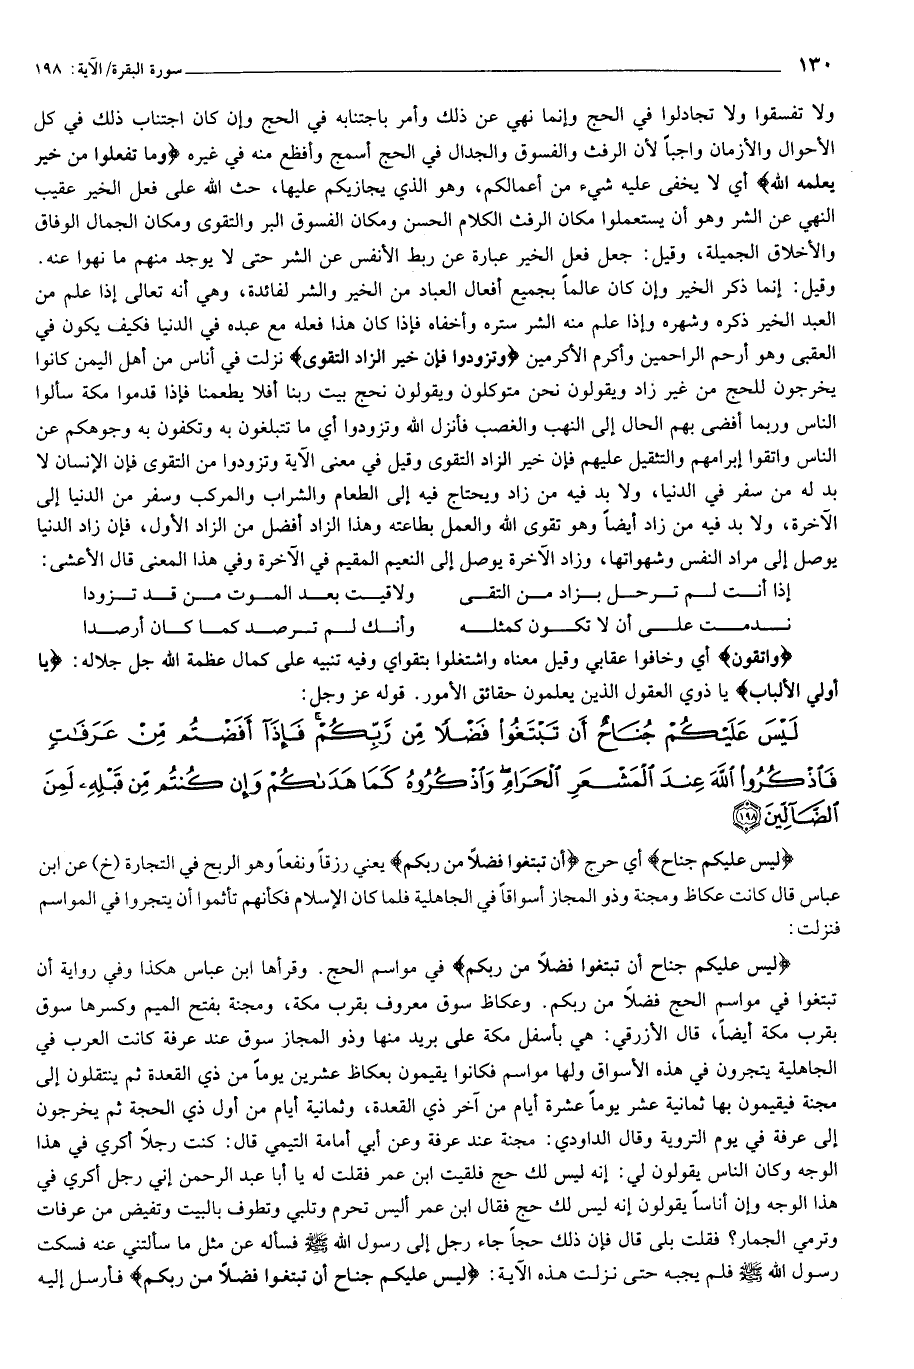 ١٣٠ سورة البقرة/ الآية: ١٩٨
ولا تفسقوا ولا تجادلوا في الحج وإنما نهي عن ذلك وأمر باجتنابه في الحج وإن كان اجتناب ذلك في كل
الأحوال والأزمان واجباً لأن الرفث والفسوق والجدال في الحج أسمج وأفظع منه في غيره ﴿وما تفعلوا من خير
يعلمه الله﴾ أي لا يخفى عليه شيء من أعمالكم، وهو الذي يجازيكم عليها، حث الله على فعل الخير عقيب
النهي عن الشر وهو أن يستعملوا مكان الرفث الكلام الحسن ومكان الفسوق البر والتقوى ومكان الجمال الوفاق
والأخلاق الجميلة، وقيل: جعل فعل الخير عبارة عن ربط الأنفس عن الشر حتى لا يوجد منهم ما نهوا عنه.
وقيل: إنما ذكر الخير وإن كان عالماً بجميع أفعال العباد من الخير والشر لفائدة، وهي أنه تعالى إذا علم من
العبد الخير ذكره وشهره وإذا علم منه الشر ستره وأخفاه فإذا كان هذا فعله مع عبده في الدنيا فكيف يكون في
العقبى وهو أرحم الراحمين وأكرم الأكرمين ﴿وتزودوا فإن خير الزاد التقوى﴾ نزلت في أناس من أهل اليمن كانوا
يخرجون للحج من غير زاد ويقولون نحن متوكلون ويقولون نحج بيت ربنا أفلا يطعمنا فإذا قدموا مكة سألوا
الناس وربما أفضى بهم الحال إلى النهب والغصب فأنزل الله وتزودوا أي ما تتبلغون به وتكفون به وجوهكم عن
الناس واتقوا إبرامهم والتثقيل عليهم فإن خير الزاد التقوى وقيل في معنى الآية وتزودوا من التقوى فإن الإنسان لا
بد له من سفر في الدنيا، ولا بد فيه من زاد ويحتاج فيه إلى الطعام والشراب والمركب وسفر من الدنيا إلى
الآخرة، ولا بد فيه من زاد أيضاً وهو تقوى الله والعمل بطاعته وهذا الزاد أفضل من الزاد الأول، فإن زاد الدنيا
يوصل إلى مراد النفس وشهواتها، وزاد الآخرة يوصل إلى النعيم المقيم في الآخرة وفي هذا المعنى قال الأعشى:
إذا أنت لم ترحل بزاد من التقى ولاقيت بعد الموت من قد تزودا
ندمت على أن لا تكون كمثله وأنك لم ترصد كما كان أرصدا
﴿واتقون﴾ أي وخافوا عقابي وقيل معناه واشتغلوا بتقواي وفيه تنبيه على كمال عظمة الله جل جلاله: ﴿يا
أولي الألباب﴾ يا ذوي العقول الذين يعلمون حقائق الأمور. قوله عز وجل:
لَيْسَ عَلَيْكُمْ جُنَاحٌ أَن تَبْتَغُوا فَضْلًا مِّن رَّبِّكُمْ ۚ فَإِذَآ أَفَضْتُم مِّنْ عَرَفَٰتٍ
فَٱذْكُرُوا ٱللَّهَ عِندَ ٱلْمَشْعَرِ ٱلْحَرَامِ ۖ وَٱذْكُرُوهُ كَمَا هَدَىٰكُمْ وَإِن كُنتُم مِّن قَبْلِهِۦ لَمِنَ
ٱلضَّآلِّينَ ١٩٨
﴿ليس عليكم جناح﴾ أي حرج ﴿أن تبتغوا فضلاً من ربكم﴾ يعني رزقاً ونفعاً وهو الربح في التجارة (خ) عن ابن
عباس قال كانت عكاظ ومجنة وذو المجاز أسواقاً في الجاهلية فلما كان الإسلام فكأنهم تأثموا أن يتجروا في المواسم
فنزلت:
﴿ليس عليكم جناح أن تبتغوا فضلاً من ربكم﴾ في مواسم الحج. وقرأها ابن عباس هكذا وفي رواية أن
تبتغوا في مواسم الحج فضلاً من ربكم. وعكاظ سوق معروف بقرب مكة، ومجنة بفتح الميم وكسرها سوق
بقرب مكة أيضاً، قال الأزرقي: هي بأسفل مكة على بريد منها وذو المجاز سوق عند عرفة كانت العرب في
الجاهلية يتجرون في هذه الأسواق ولها مواسم فكانوا يقيمون بعكاظ عشرين يوماً من ذي القعدة ثم ينتقلون إلى
مجنة فيقيمون بها ثمانية عشر يوماً عشرة أيام من آخر ذي القعدة، وثمانية أيام من أول ذي الحجة ثم يخرجون
إلى عرفة في يوم التروية وقال الداودي: مجنة عند عرفة وعن أبي أمامة التيمي قال: كنت رجلاً أكري في هذا
الوجه وكان الناس يقولون لي: إنه ليس لك حج فلقيت ابن عمر فقلت له يا أبا عبد الرحمن إني رجل أكري في
هذا الوجه وإن أناساً يقولون إنه ليس لك حج فقال ابن عمر أليس تحرم وتلبي وتطوف بالبيت وتفيض من عرفات
وترمي الجمار؟ فقلت بلى قال فإن ذلك حجاً جاء رجل إلى رسول الله ﷺ فسأله عن مثل ما سألتني عنه فسكت
رسول الله ﷺ فلم يجبه حتى نزلت هذه الآية: ﴿ليس عليكم جناح أن تبتغوا فضلاً من ربكم﴾ فأرسل إليه